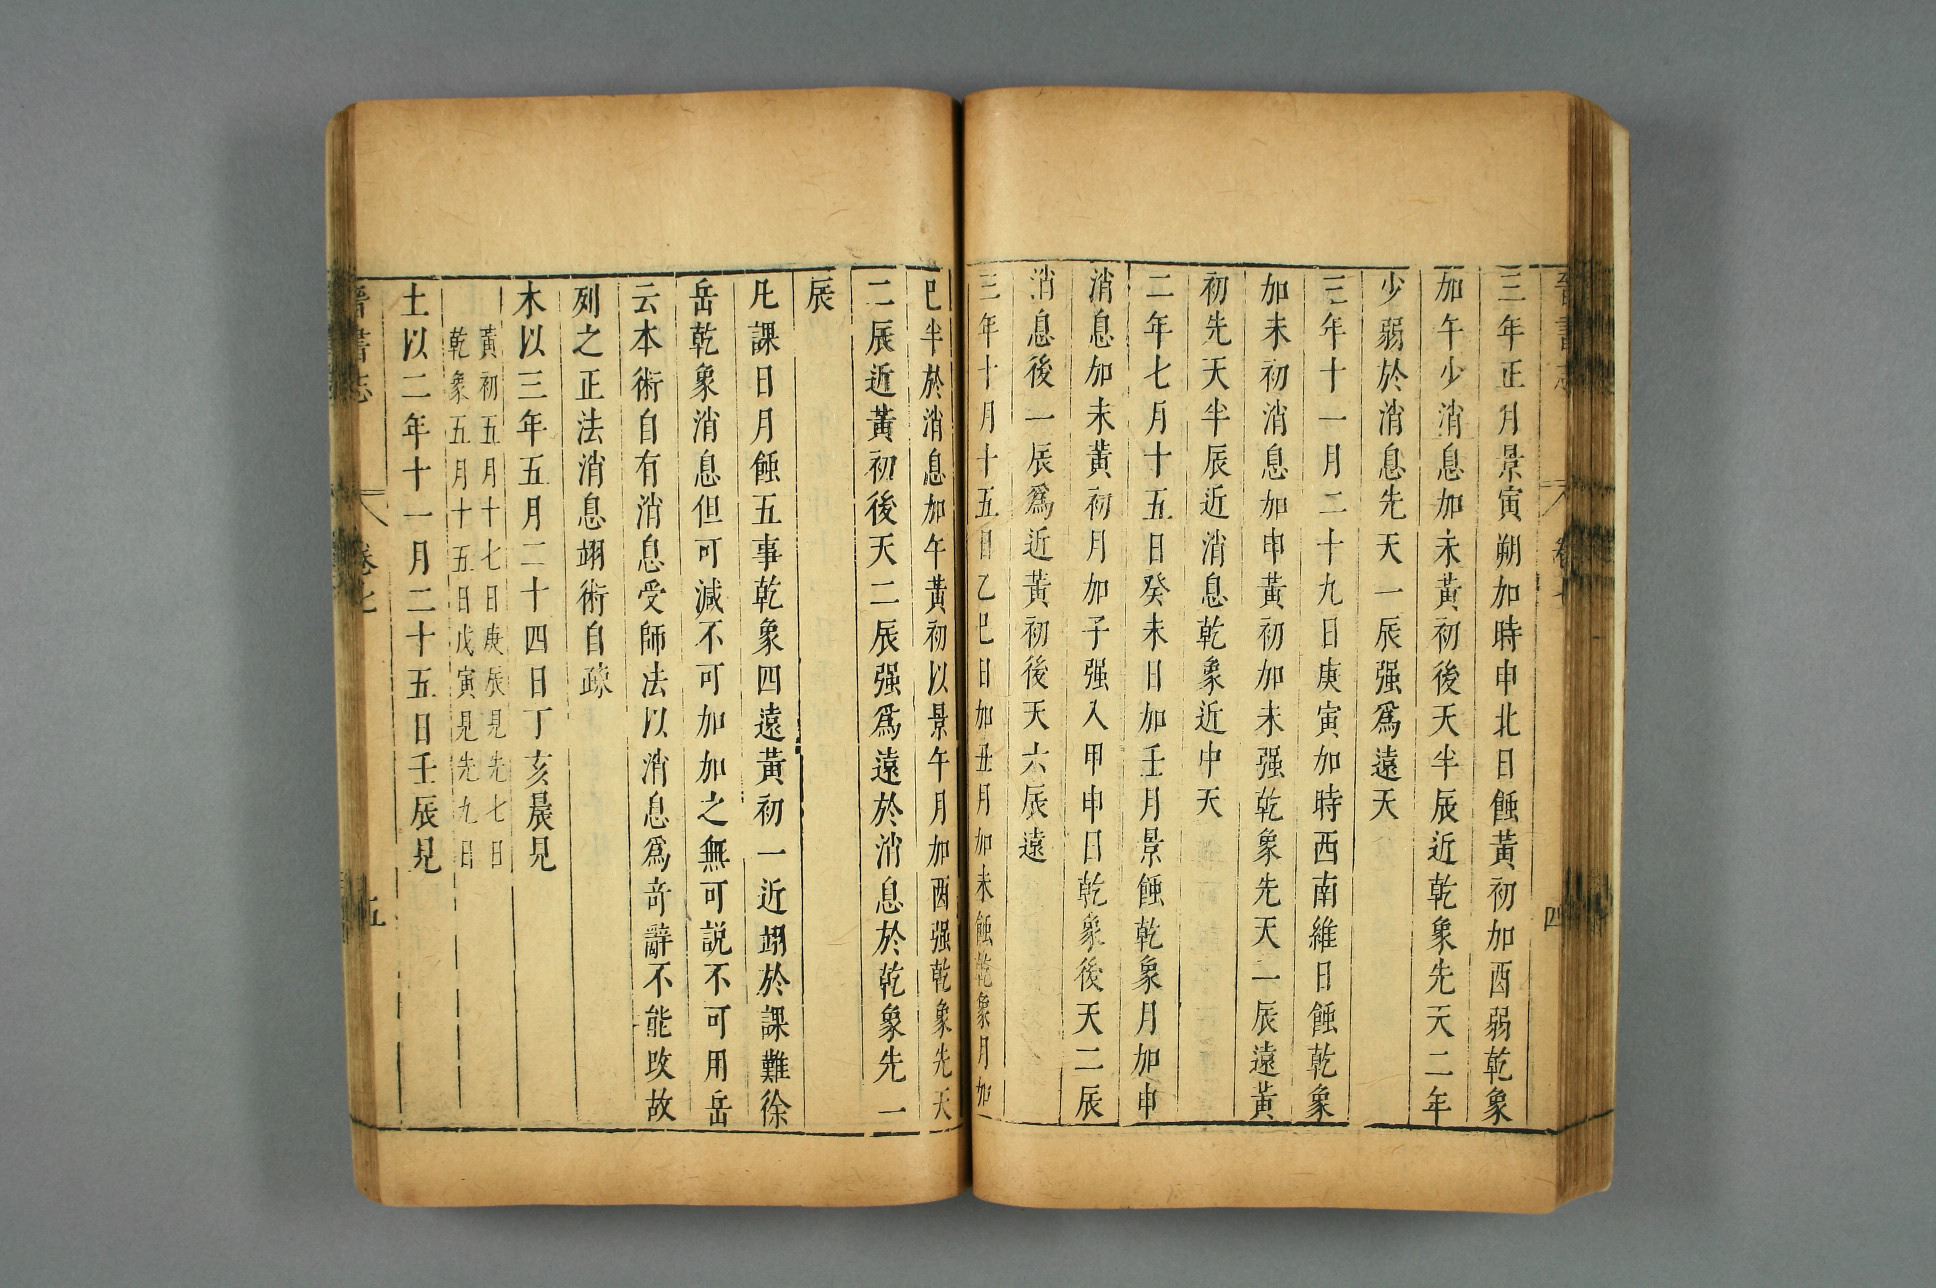 晉書志 卷七 四
三年正月景寅朔加時申北日蝕黃初加酉弱乾象
加午少消息加未黃初後天半辰近乾象先天二年
少弱於消息先天一辰强爲遠天
三年十一月二十九日庚寅加時西南維日蝕乾象
加未初消息加申黃初加未强乾象先天一辰遠黃
初先天半辰近消息乾象近中天
二年七月十五日癸未日加壬月景蝕乾象月加申
消息加未黃初月加子强入甲申日乾象後天二辰
消息後一辰爲近黃初後天六辰遠
三年十月十五日乙巳日加丑月加未蝕乾象月加
巳半於消息加午黃初以景午月加酉强乾象先天
二辰近黃初後天二辰强爲遠於消息於乾象先一
辰
凡課日月蝕五事乾象四遠黃初一近翊於課難徐
岳乾象消息但可減不可加加之無可説不可用岳
云本術自有消息受師法以消息爲奇辭不能改故
列之正法消息翊術自疏
木以三年五月二十四日丁亥晨見
黃初五月十七日庚辰見先七日
乾象五月十五日戊寅見先九日
土以二年十一月二十五日壬辰見
晉書志 卷七 五